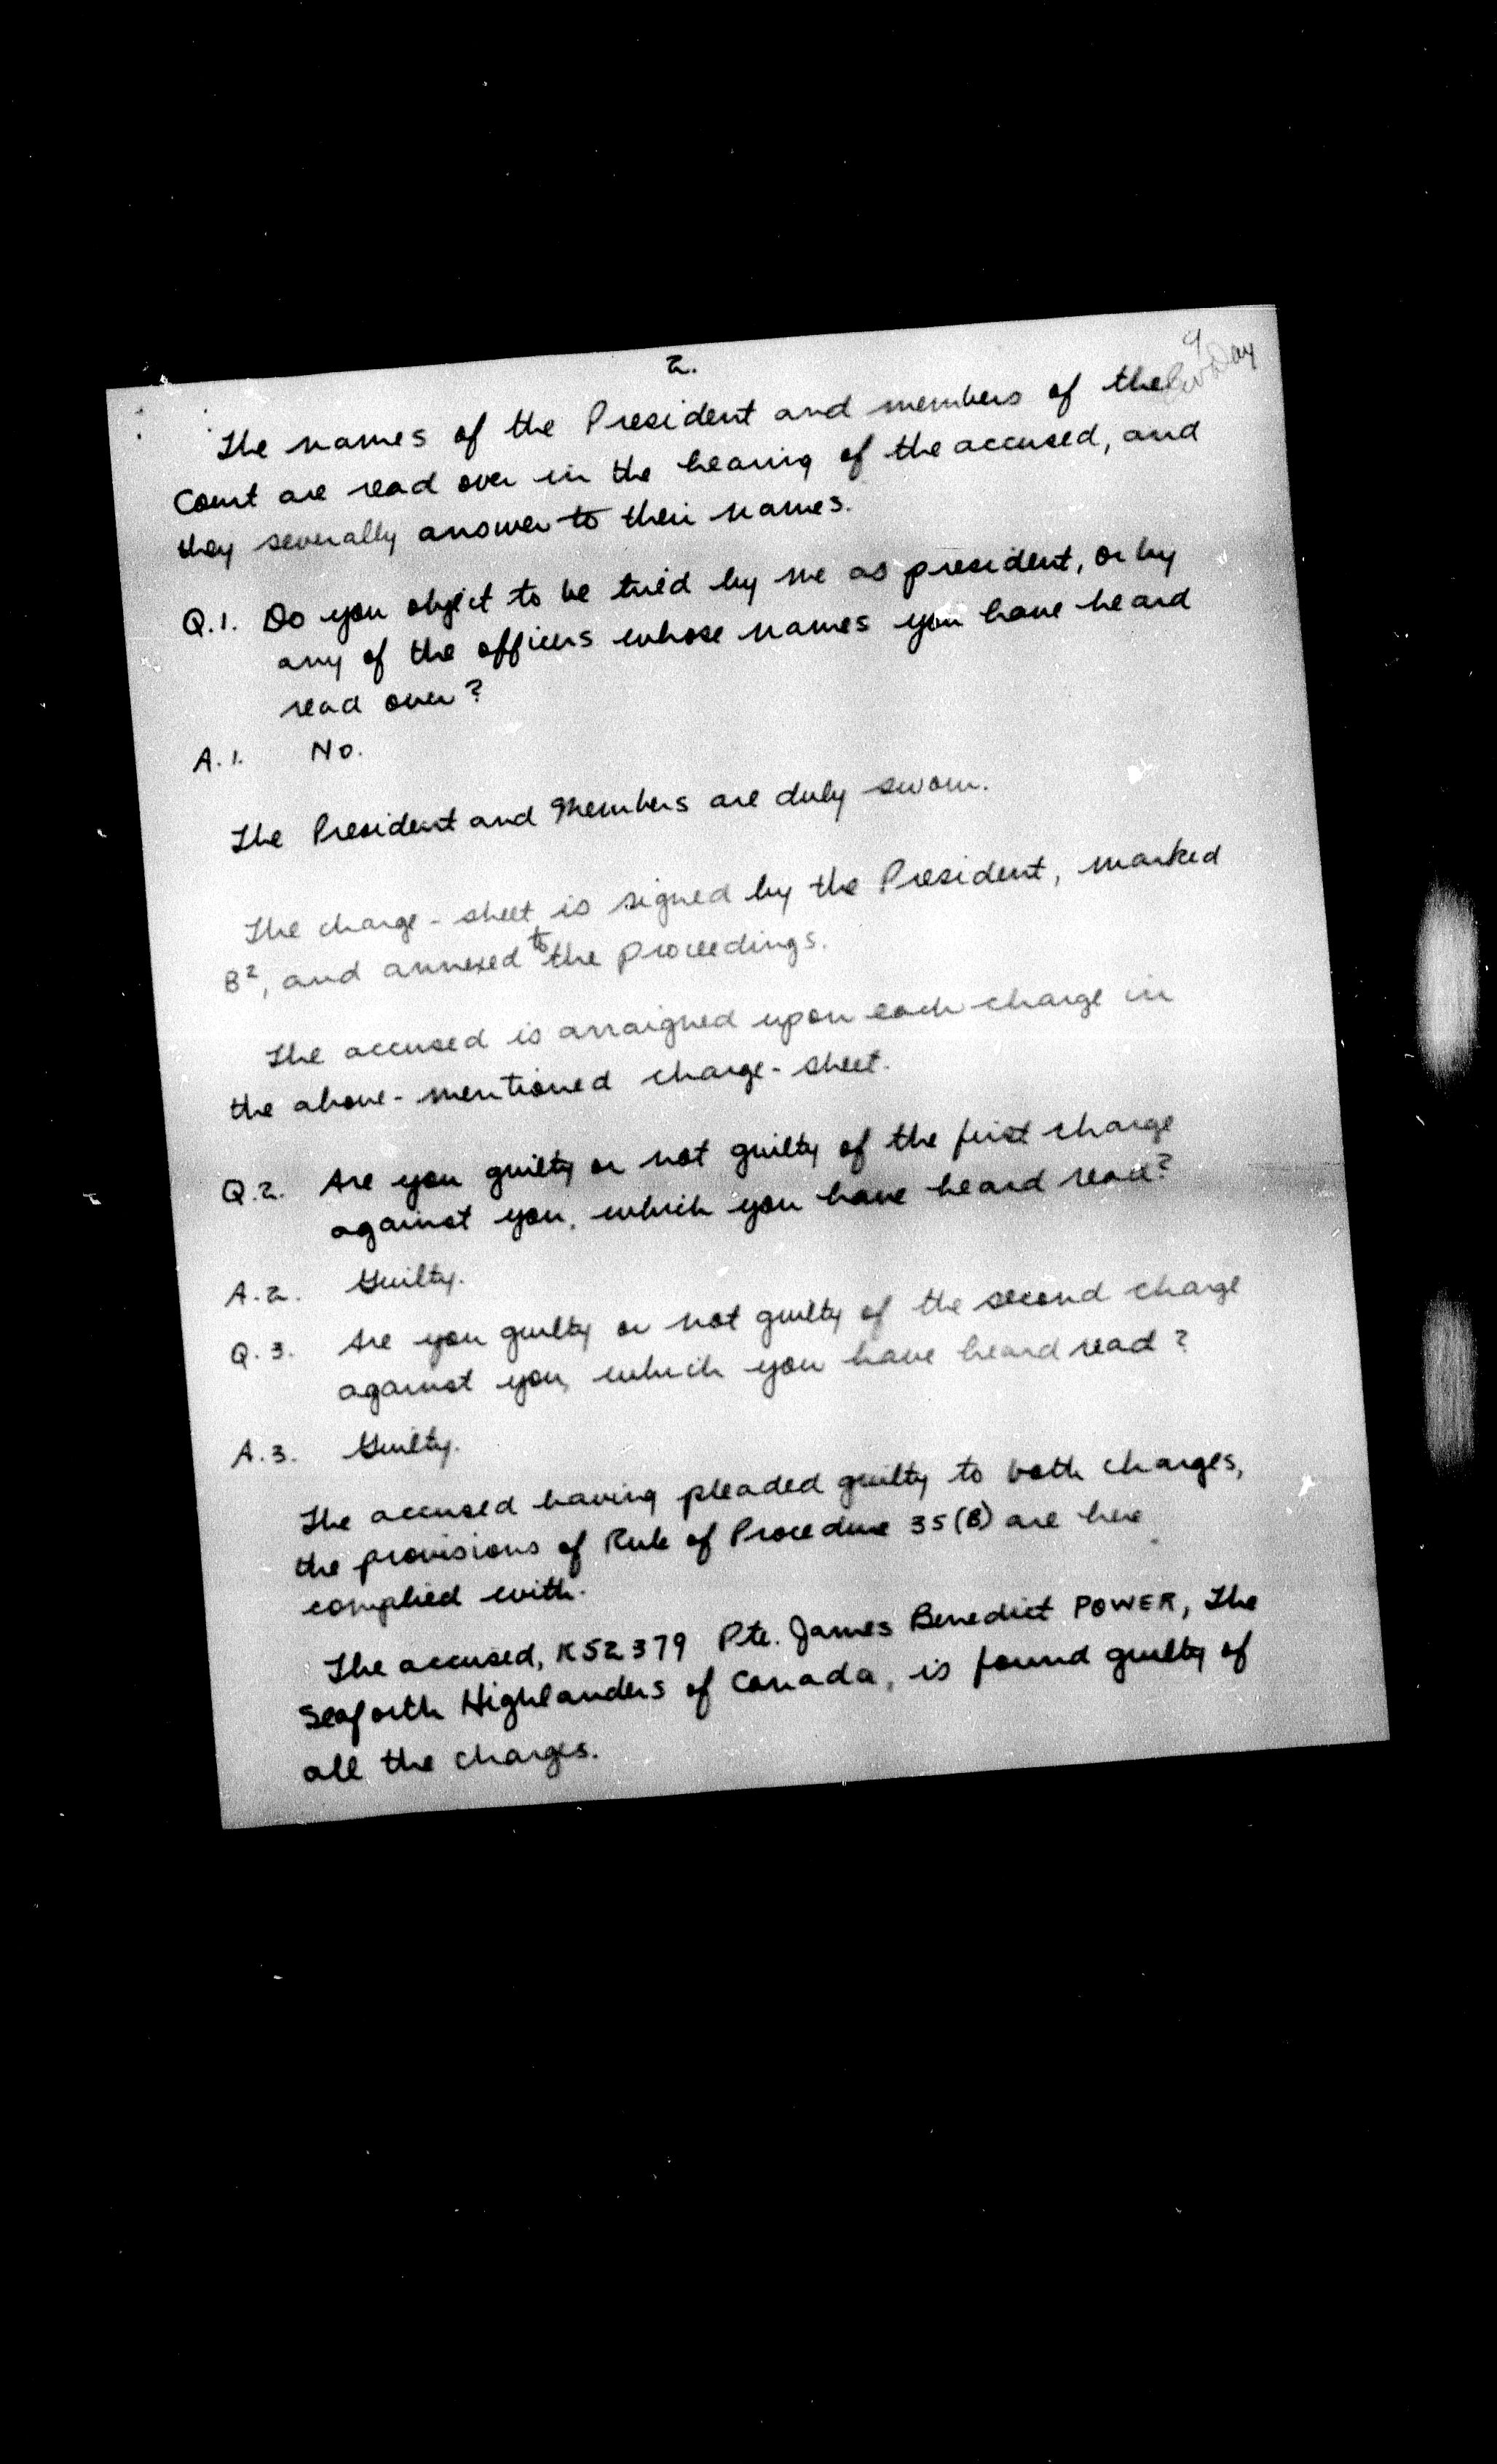 2.
9
The names of the President and members of the
Court are read over in the hearing of the accused, and
they severally answer to their names.
Q.1. Do you object to be tried by me as president, or by
any of the officers whose names you have heard
read over?
A.1. No.
The President and Members are duly sworn.
The charge-sheet is signed by the President, marked
B², and annexed to the proceedings.
The accused is arraigned upon each charge in
the above-mentioned charge-sheet.
Q.2. Are you guilty or not guilty of the first charge
against you, which you have heard read?
A.2. Guilty.
Q.3. Are you guilty or not guilty of the second charge
against you, which you have heard read?
A.3. Guilty.
The accused having pleaded guilty to both charges,
the provisions of Rule of Procedure 35(B) are here
complied with.
The accused, K52379 Pte. James Benedict POWER, The
Seaforth Highlanders of Canada, is found guilty of
all the charges.